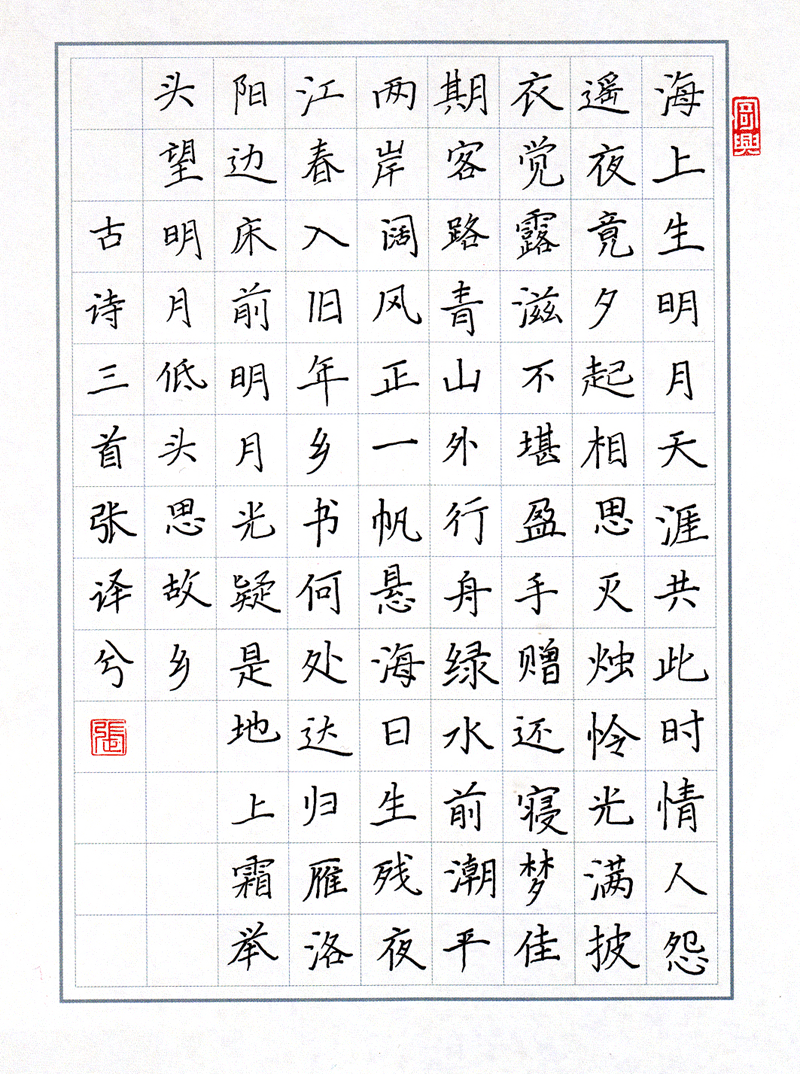 海上生明月天涯共此时情人怨
遥夜竟夕起相思灭烛怜光满披
衣觉露滋不堪盈手赠还寝梦佳
期客路青山外行舟绿水前潮平
两岸阔风正一帆悬海日生残夜
江春入旧年乡书何处达归雁洛
阳边床前明月光疑是地上霜举
头望明月低头思故乡
古诗三首张译兮
張